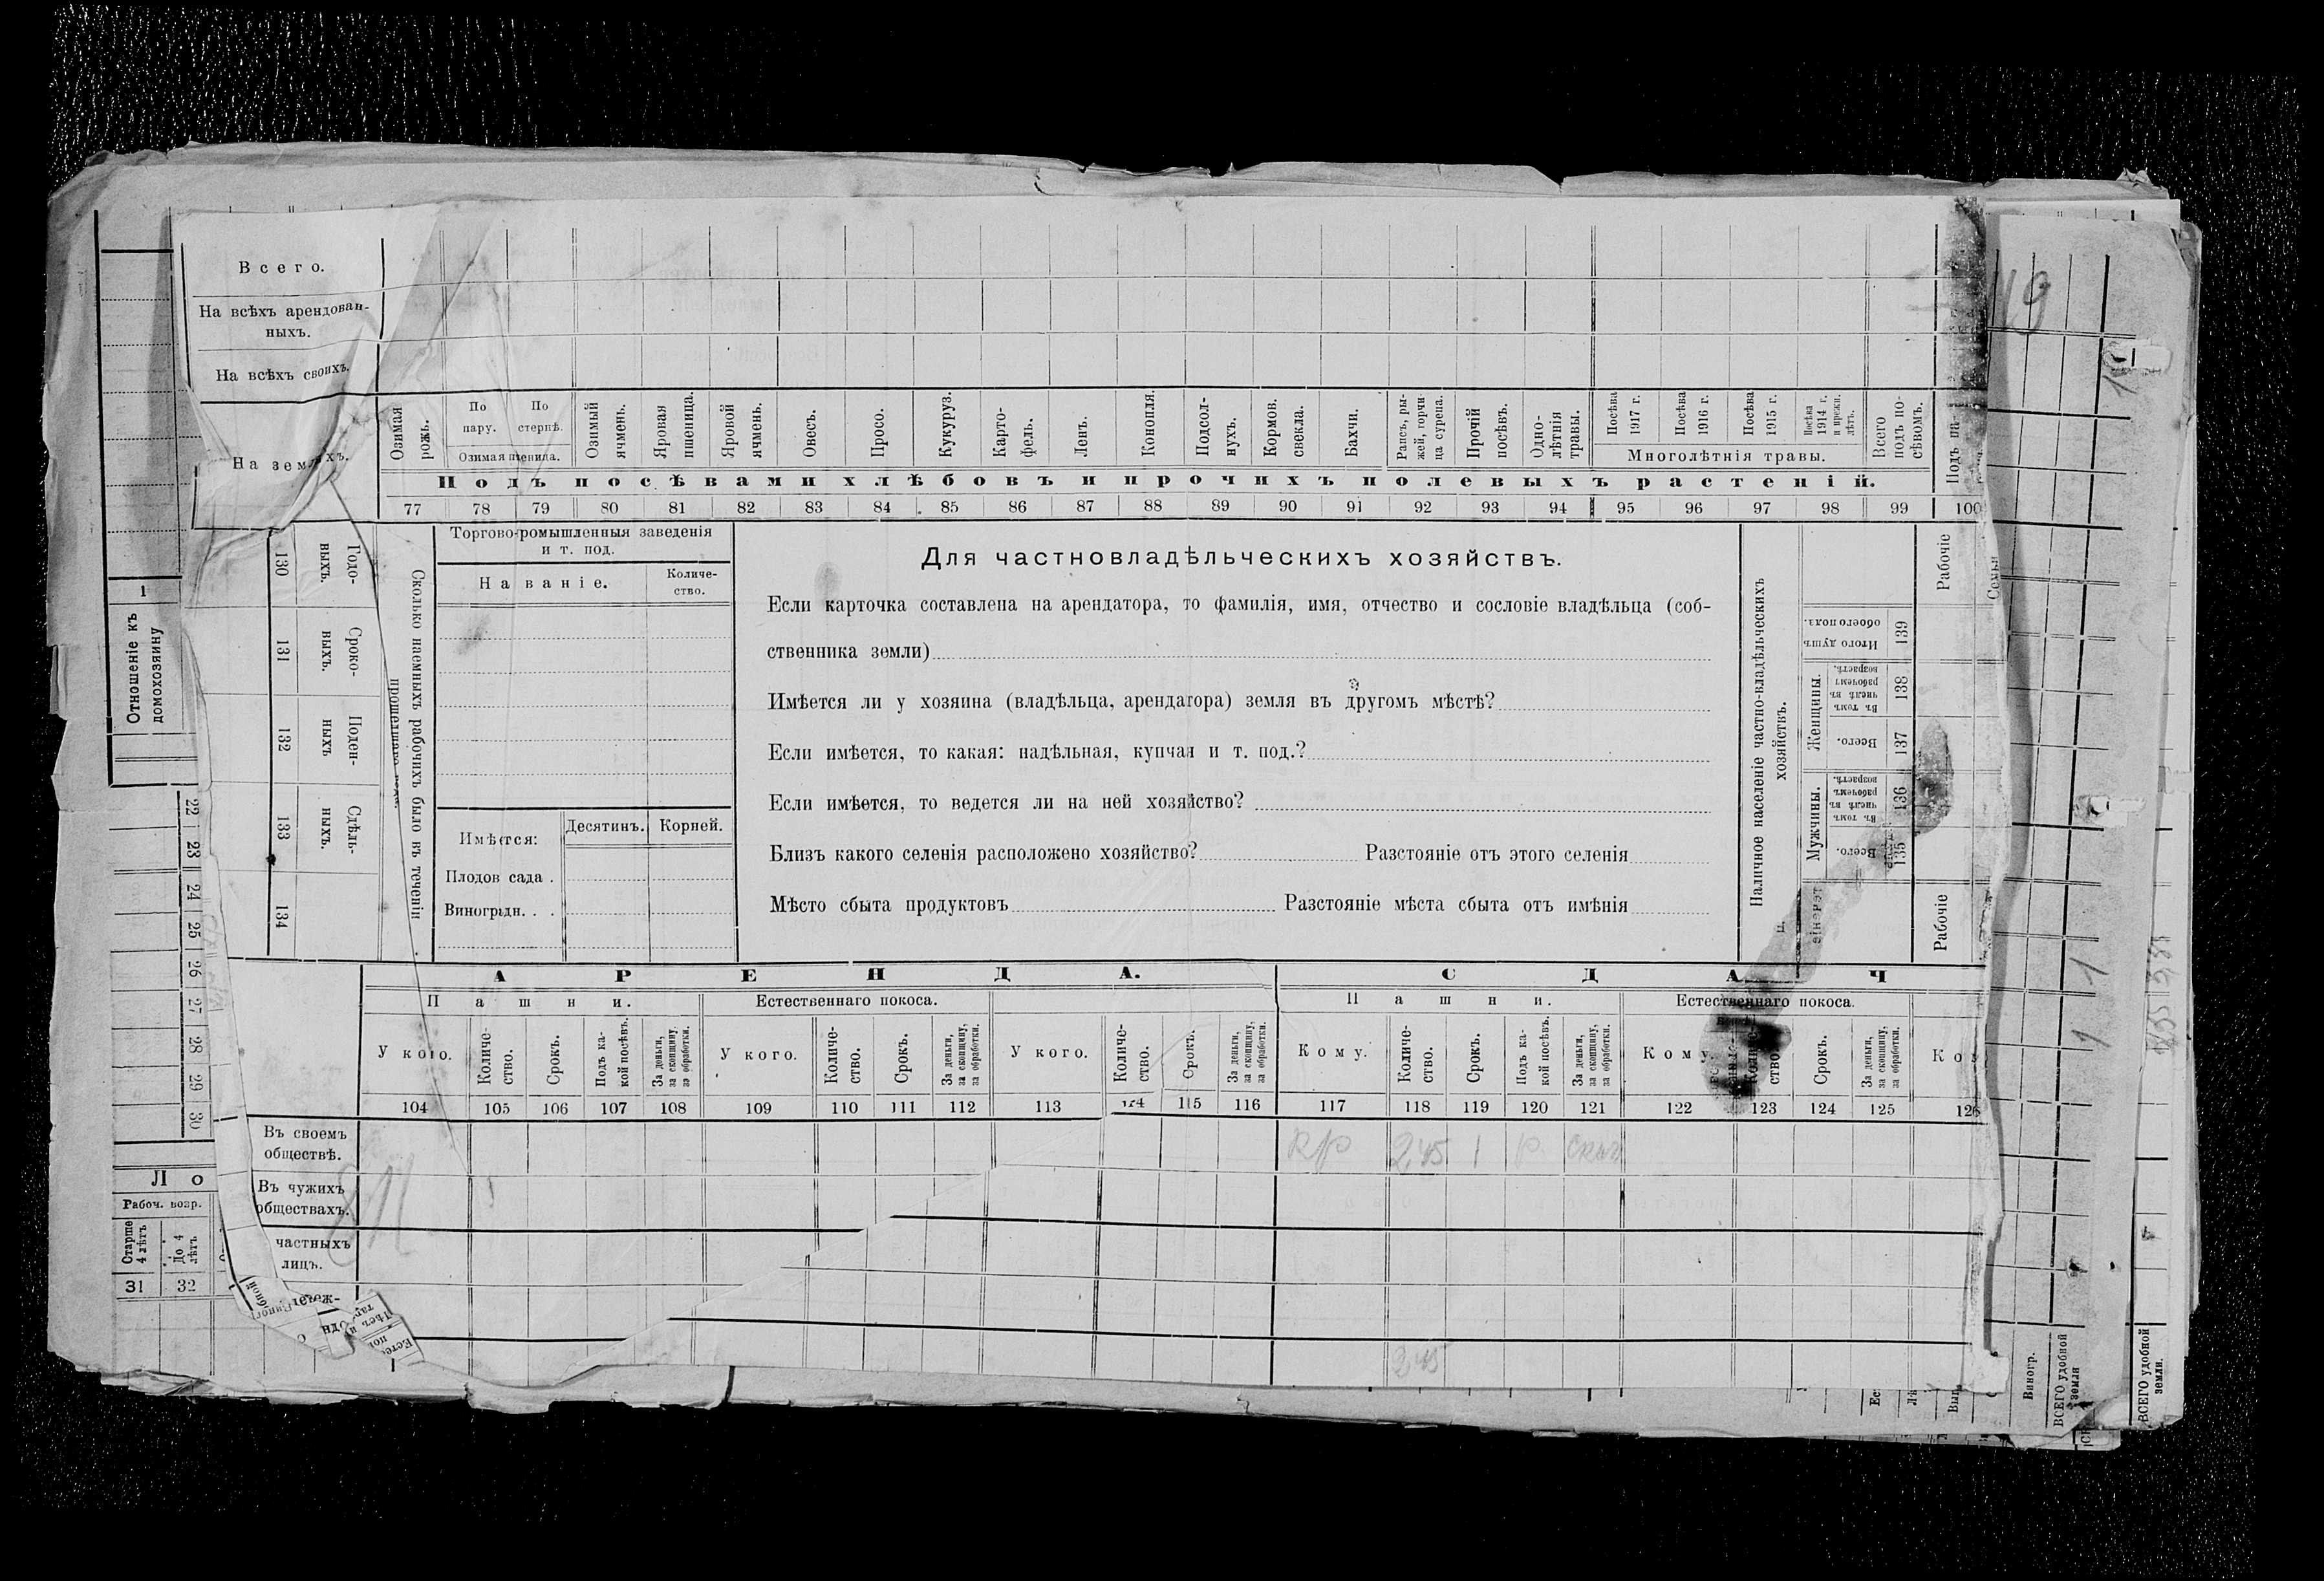 Всего.
На всѣхъ арендован-
ныхъ.
На всѣхъ своихъ.
На земляхъ.
Озимая
рожь.
По
пару.
По
стернѣ.
Озимая пшеница.
Озимый
ячмень.
Яровая
пшеница.
Яровой
ячмень.
Овесъ.
Просо.
Кукуруз.
Карто-
фель.
Ленъ.
Конопля.
Подсол-
нухъ.
Кормов.
свекла.
Бахчи.
Рапсъ, ры-
жей, горчи-
ца сурепа.
Прочій
посѣвъ.
Одно-
лѣтнія
травы.
Посѣва
1917 г.
Посѣва
1916 г.
Посѣва
1915 г.
Посѣва
1914 г.
и прежн.
лѣтъ.
Многолѣтнія травы.
Всего
подъ по-
сѣвомъ.
Подъ па
Подъ посѣвами хлѣбовъ и прочихъ полевыхъ растеній.
77 78 79 80 81 82 83 84 85 86 87 88 89 90 91 92 93 94 95 96 97 98 99 100
1
Отношеніе къ
домохозяину
130
Годо-
выхъ.
131
Сроко-
выхъ.
132
Поден-
ныхъ
133
Сдѣль-
ныхъ.
134
Сколько наемныхъ рабочихъ было въ теченіи
Торгово-промышленныя заведенія
и т. под.
Названіе.
Количе-
ство.
Имѣется:
Десятинъ.
Корней.
Плодов сада .
Виноградн. . .
Для частновладѣльческихъ хозяйствъ.
Если карточка составлена на арендатора, то фамилія, имя, отчество и сословіе владѣльца (соб-
ственника земли)
Имѣется ли у хозяина (владѣльца, арендатора) земля въ другомъ мѣстѣ?
Если имѣется, то какая: надѣльная, купчая и т. под.?
Если имѣется, то ведется ли на ней хозяйство?
Близъ какого селенія расположено хозяйство? Разстояніе отъ этого селенія
Мѣсто сбыта продуктовъ Разстояніе мѣста сбыта отъ имѣнія
Наличное населеніе частно-владѣльческихъ
хозяйствъ.
Итого душъ
обоего пола.
139
Женщины.
Въ томъ
числѣ въ
рабочемъ
возрастѣ.
138
Всего.
137
Мужчины.
Въ томъ
числѣ въ
рабочемъ
возрастѣ.
136
Всего.
135
Рабочіе
Рабочіе
22 23 24 25 26 27 28 29 30
АРЕНДА.
СДАЧ
Пашни.
Естественнаго покоса.
Пашни.
Естественнаго покоса.
У кого.
Количе-
ство.
Срокъ.
Подъ ка-
кой посѣвъ.
За деньги,
за скопщину,
за обработки.
У кого.
Количе-
ство.
Срокъ.
За деньги,
за скопщину,
за обработки.
У кого.
Количе-
ство.
Срокъ.
За деньги,
за скопщину,
за обработки.
Кому.
Количе-
ство.
Срокъ.
Подъ ка-
кой посѣвъ.
За деньги,
за скопщину,
за обработки.
Кому.
Количе-
ство.
Срокъ.
За деньги,
за скопщину,
за обработки.
104 105 106 107 108 109 110 111 112 113 114 115 116 117 118 119 120 121 122 123 124 125 126
Въ своемъ
обществѣ.
2,45 1
Въ чужихъ
обществахъ.
частныхъ
лицъ.
2,45
Ло
Рабоч. возр.
Старше
4 лѣтъ
До 4
лѣтъ
31 32
Виногр.
ВСЕГО удобной
земли
ВСЕГО удобной
земли.